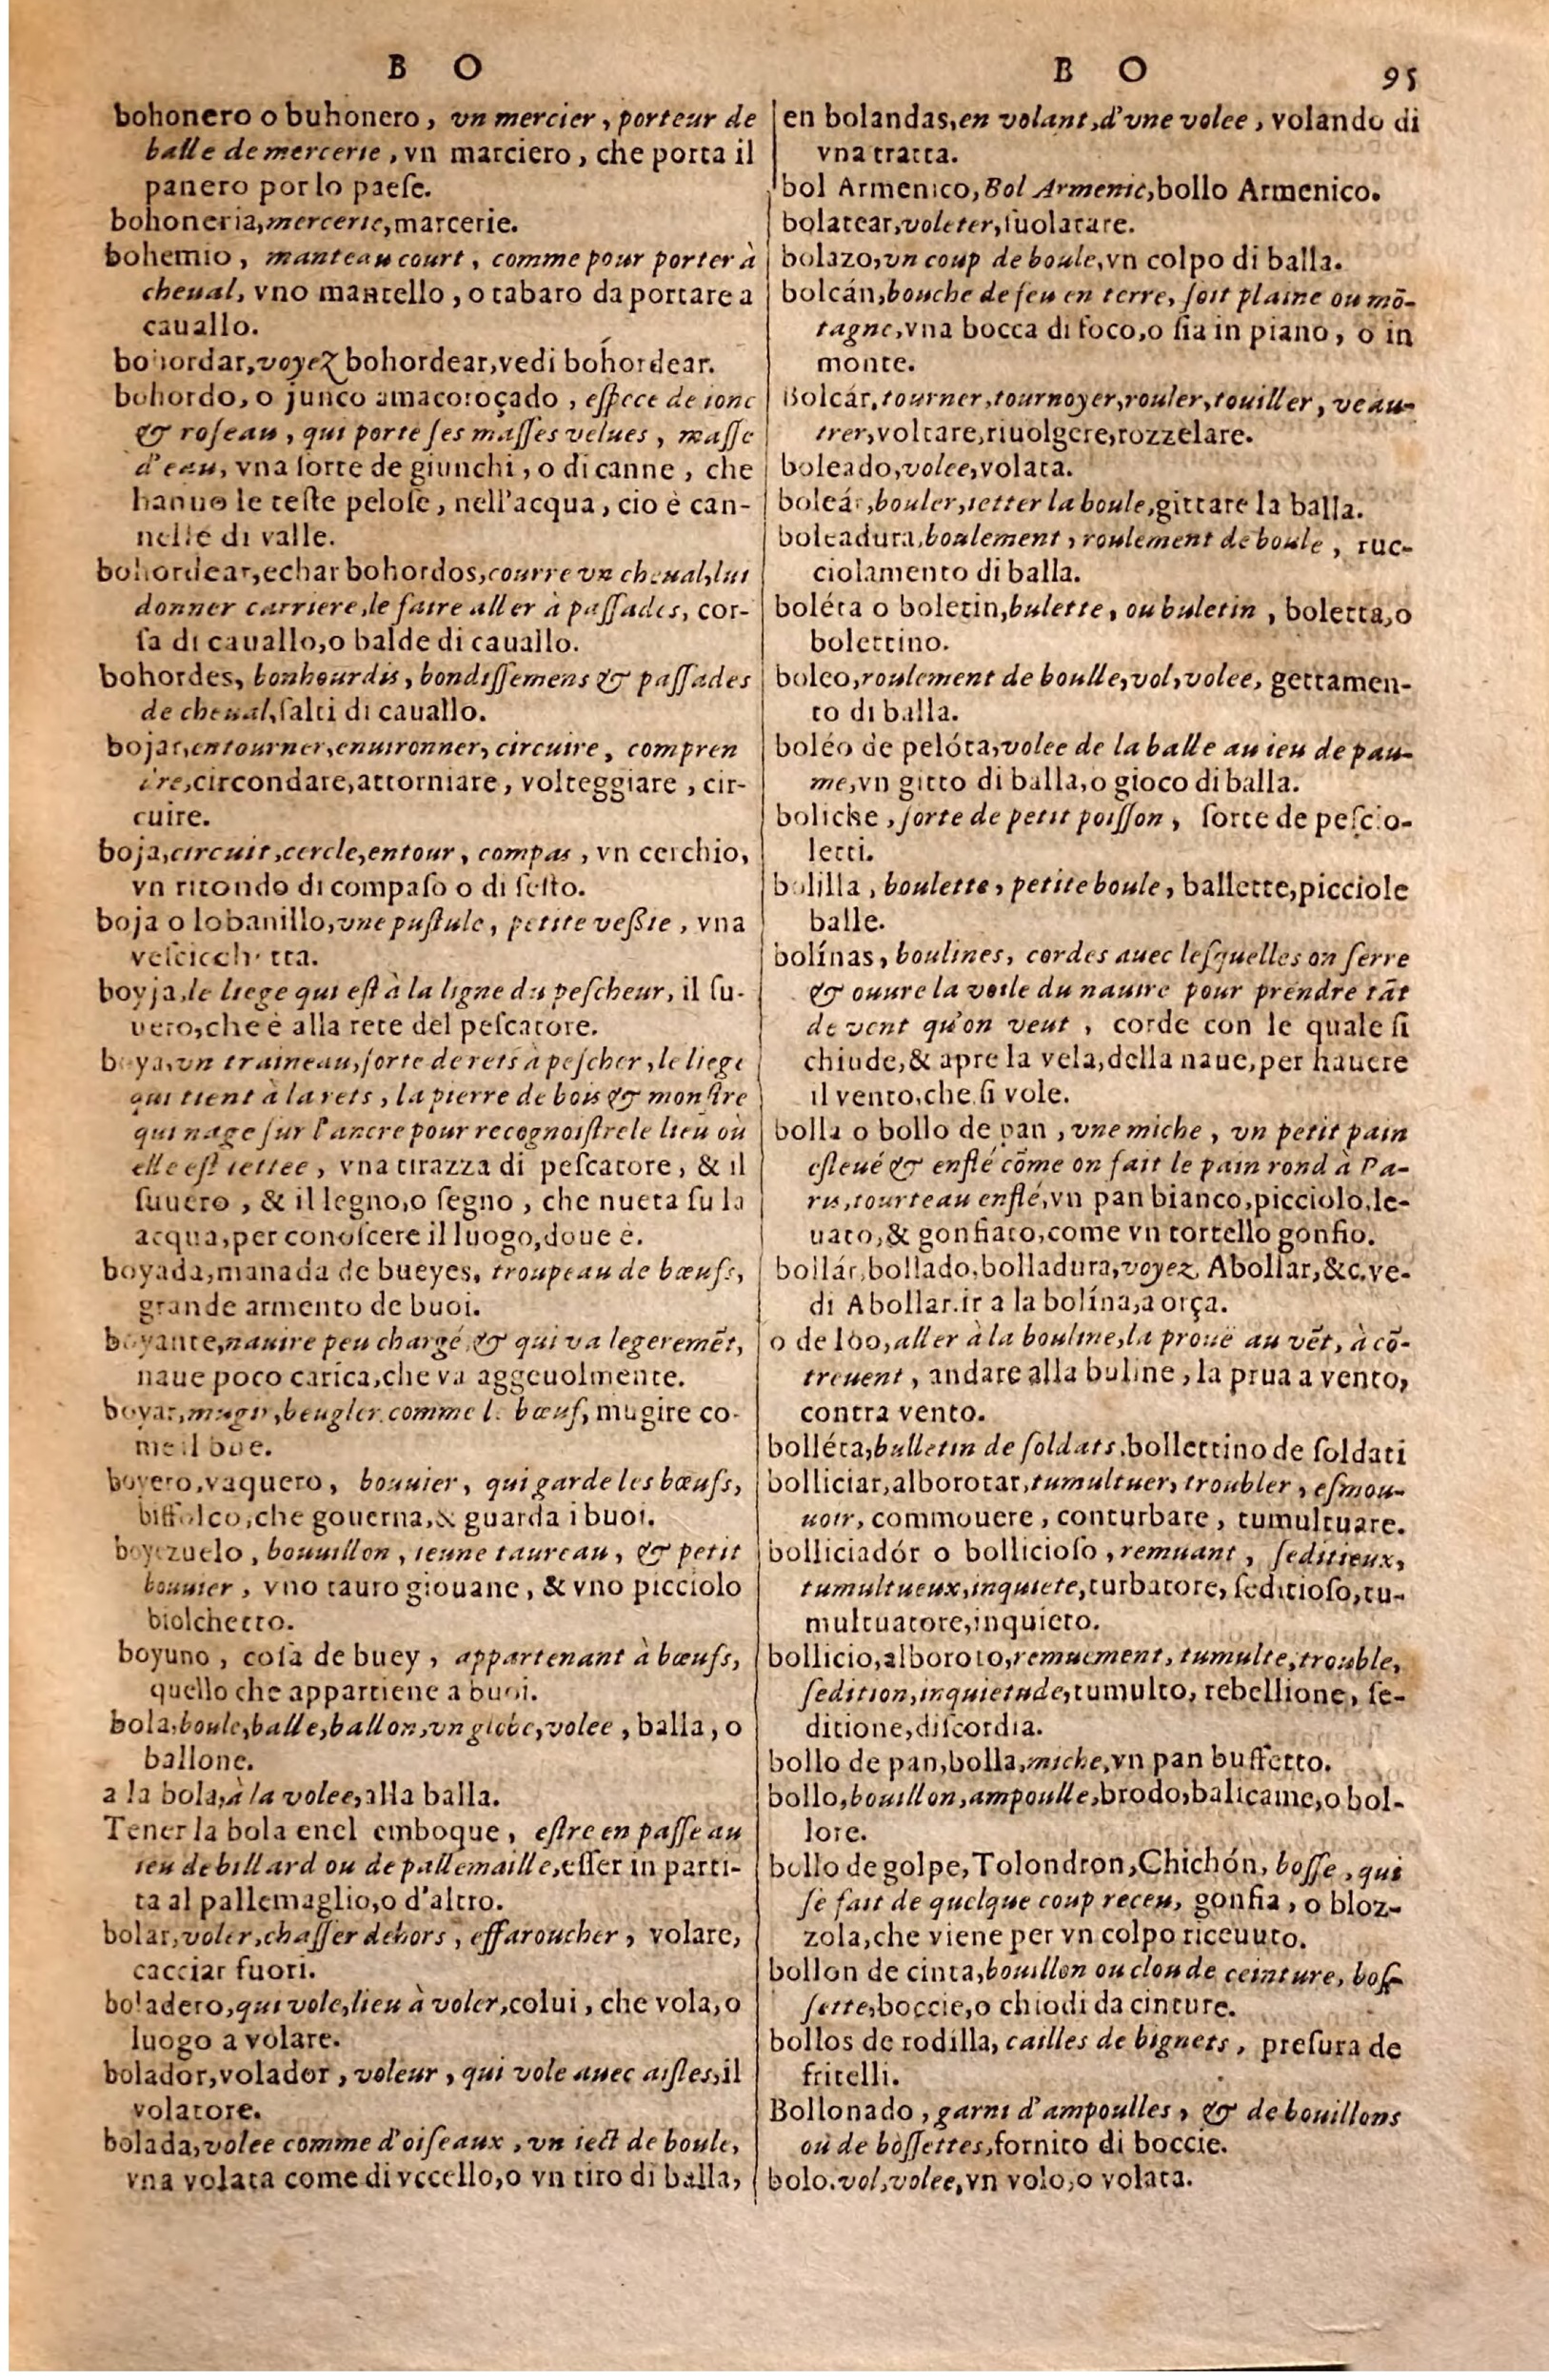 B O
bohonero o buhonero, vn mercier, porteur de
balle de mercerie, vn marciero, che porta il
panero por lo paeſe.
bohoneria, mercerie, marcerie.
bohemio, manteau court, comme pour porter à
cheual, vno mantello, o tabaro da portare a
cauallo.
bohordar, voyez bohordear, vedi bohordear.
bohordo, o junco amacoroçado, eſpece de ionc
& roſeau, qui porte ſes maſſes velues, maſſe
d'eau, vna ſorte de giunchi, o di canne, che
hanno le teſte peloſe, nell'acqua, cio è can-
nelle di valle.
bohordear, echar bohordos, courre vn cheual, lui
donner carriere, le faire aller à paſſades, cor-
ſa di cauallo, o balde di cauallo.
bohordes, bonhourdis, bondiſſemens & paſſades
de cheual, ſalti di cauallo.
bojar, entourner, enuironner, circuire, compren
dre, circondare, attorniare, volteggiare, cir-
cuire.
boja, circuit, cercle, entour, compas, vn cerchio,
vn ritondo di compaſo o di ſeſto.
boja o lobanillo, vne puſtule, petite veſsie, vna
veſcicchetta.
boyja, le liege qui eſt à la ligne du peſcheur, il ſu-
uero, che è alla rete del peſcatore.
boya, vn traineau, ſorte de rets à peſcher, le liege
qui tient à la rets, la pierre de bois & monſtre
qui nage ſur l'ancre pour recognoiſtre le lieu où
elle eſt iettee, vna tirazza di peſcatore, & il
ſuuero, & il legno, o ſegno, che nueta ſu la
acqua, per conoſcere il luogo, doue è.
boyada, manada de bueyes, troupeau de bœufs,
grande armento de buoi.
boyante, nauire peu chargé, & qui va legeremēt,
naue poco carica, che va aggeuolmente.
boyar, mugir, beugler comme le bœuf, mugire co-
me il boe.
boyero, vaquero, bouuier, qui garde les bœufs,
biffolco, che gouerna, & guarda i buoi.
boyezuelo, bouuillon, ieune taureau, & petit
bouuier, vno tauro giouane, & vno picciolo
biolchetto.
boyuno, coſa de buey, appartenant à bœufs,
quello che appartiene a buoi.
bola, boule, balle, ballon, vn globe, volee, balla, o
ballone.
a la bola, à la volee, alla balla.
Tener la bola enel emboque, eſtre en paſſe au
ieu de billard ou de pallemaille, eſſer in parti-
ta al pallemaglio, o d'altro.
bolar, voler, chaſſer dehors, effaroucher, volare,
cacciar fuori.
boladero, qui vole, lieu à voler, colui, che vola, o
luogo a volare.
bolador, volador, voleur, qui vole auec aiſles, il
volatore.
bolada, volee comme d'oiſeaux, vn iect de boule,
vna volata come di vccello, o vn tiro di balla,
B O 95
en bolandas, en volant, d'vne volee, volando di
vna tratta.
bol Armenico, Bol Armenic, bollo Armenico.
bolatear, voleter, ſuolatare.
bolazo, vn coup de boule, vn colpo di balla.
bolcán, bouche de feu en terre, ſoit plaine ou mō-
tagne, vna bocca di foco, o ſia in piano, o in
monte.
Bolcár, tourner, tournoyer, rouler, touiller, veau-
trer, voltare, riuolgere, rozzelare.
boleado, volee, volata.
boleár, bouler, ietter la boule, gittare la balla.
boleadura, boulement, roulement de boule, ruc-
ciolamento di balla.
boléta o boletin, bulette, ou buletin, boletta, o
bolettino.
boleo, roulement de boulle, vol, volee, gettamen-
to di balla.
boléo de pelóta, volee de la balle au ieu de pau-
me, vn gitto di balla, o gioco di balla.
boliche, ſorte de petit poiſſon, ſorte de peſcio-
letti.
bolilla, boulette, petite boule, ballette, picciole
balle.
bolínas, boulines, cordes auec leſquelles on ſerre
& ouure la voile du nauire pour prendre tāt
de vent qu'on veut, corde con le quale ſi
chiude, & apre la vela, della naue, per hauere
il vento, che ſi vole.
bolla o bollo de pan, vne miche, vn petit pain
eſleué & enflé cōme on fait le pain rond à Pa-
ris, tourteau enflé, vn pan bianco, picciolo, le-
uato, & gonfiato, come vn tortello gonfio.
bollár, bollado, bolladura, voyez Abollar, &c. ve-
di Abollar. ir a la bolína, a orça.
o de loo, aller à la bouline, la prouë au vēt, à cō-
treuent, andare alla buline, la prua a vento,
contra vento.
bolléta, bulletin de ſoldats, bollettino de ſoldati
bolliciar, alborotar, tumultuer, troubler, eſmou-
uoir, commouere, conturbare, tumultuare.
bolliciadór o bollicioſo, remuant, ſeditieux,
tumultueux, inquiete, turbatore, ſeditioſo, tu-
multuatore, inquieto.
bollicio, alboroto, remuement, tumulte, trouble,
ſedition, inquietude, tumulto, rebellione, ſe-
ditione, diſcordia.
bollo de pan, bolla, miche, vn pan buffetto.
bollo, bouillon, ampoulle, brodo, balicame, o bol-
lore.
bollo de golpe, Tolondron, Chichón, boſſe, qui
ſe fait de quelque coup receu, gonfia, o bloz-
zola, che viene per vn colpo riceuuto.
bollon de cinta, bouillon ou clou de ceinture, boſ-
ſette, boccie, o chiodi da cinture.
bollos de rodilla, cailles de bignets, preſura de
fritelli.
Bollonado, garni d'ampoulles, & de bouillons
ou de boſſettes, fornito di boccie.
bolo, vol, volee, vn volo, o volata.